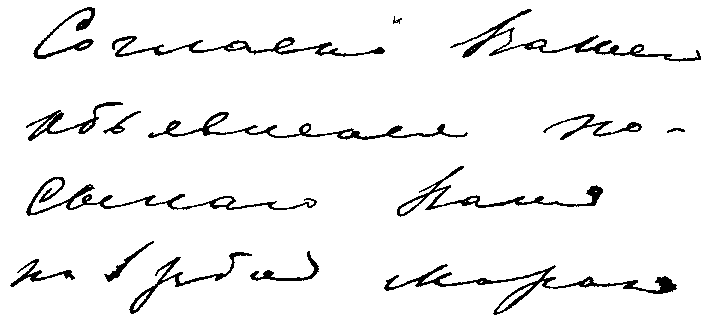 Согласно
объявления по-
сылаю Вам
на 1 рубль марок